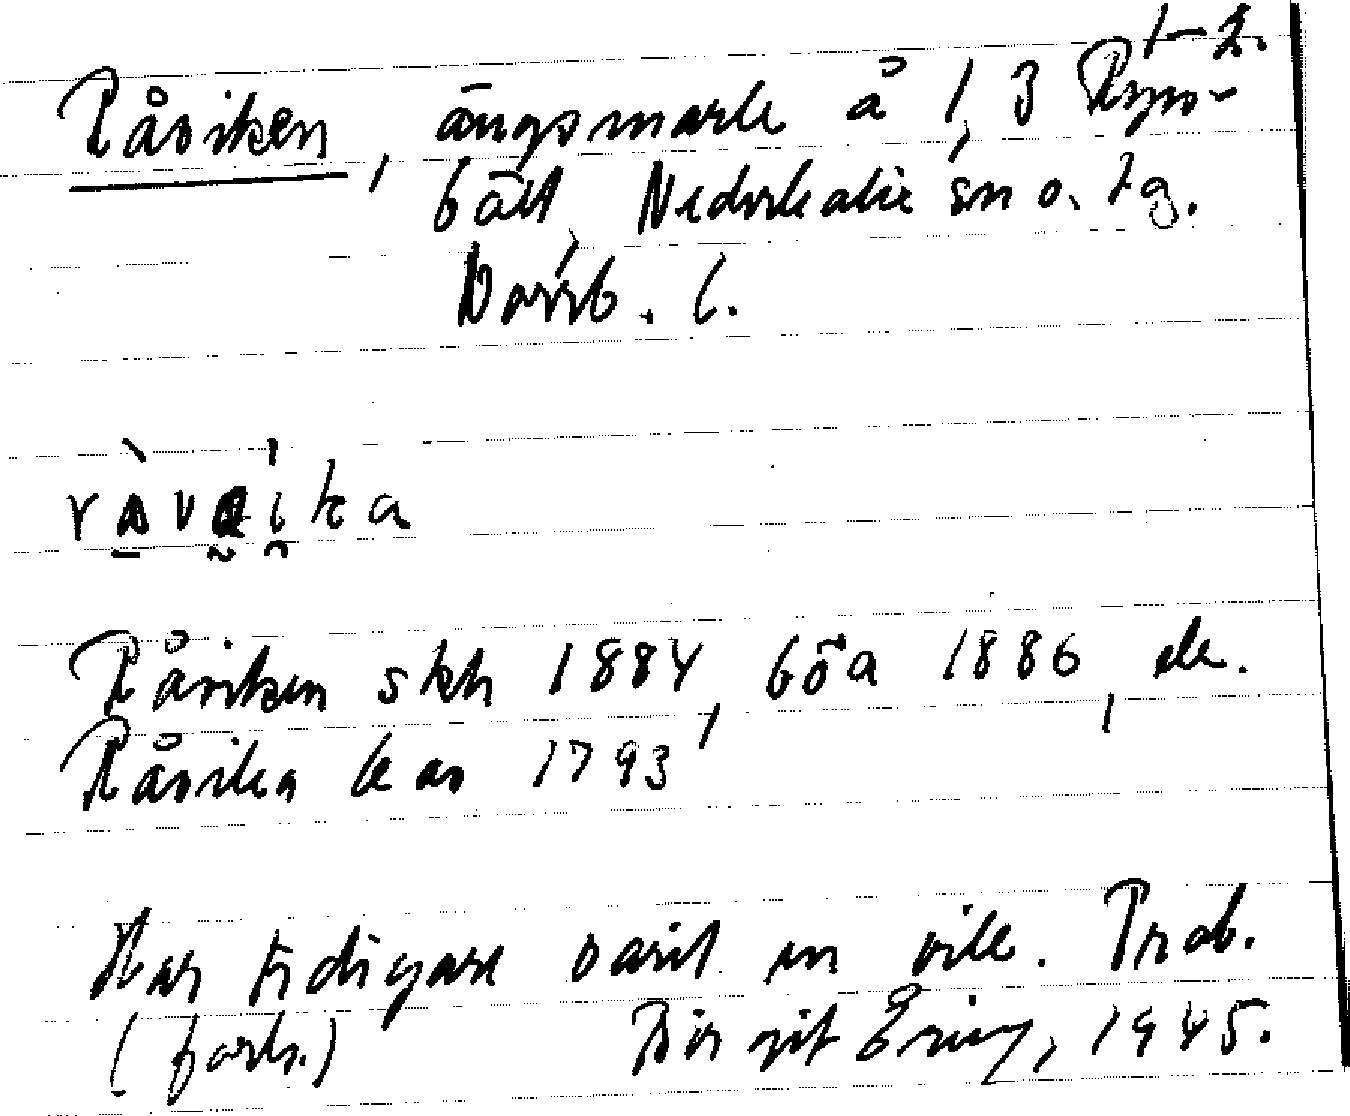 1–2.
Råviken, ängsmark å 1, 3 Ryss-
bält, Nederkalix sn o. tg.
Norrb. l.
råvvika
Råviken skh 1884, böa 1886, ek.
Råvika kas 1793
Har tidigare varit en vik. Prab.
(fork.) Birgit Ering, 1945.